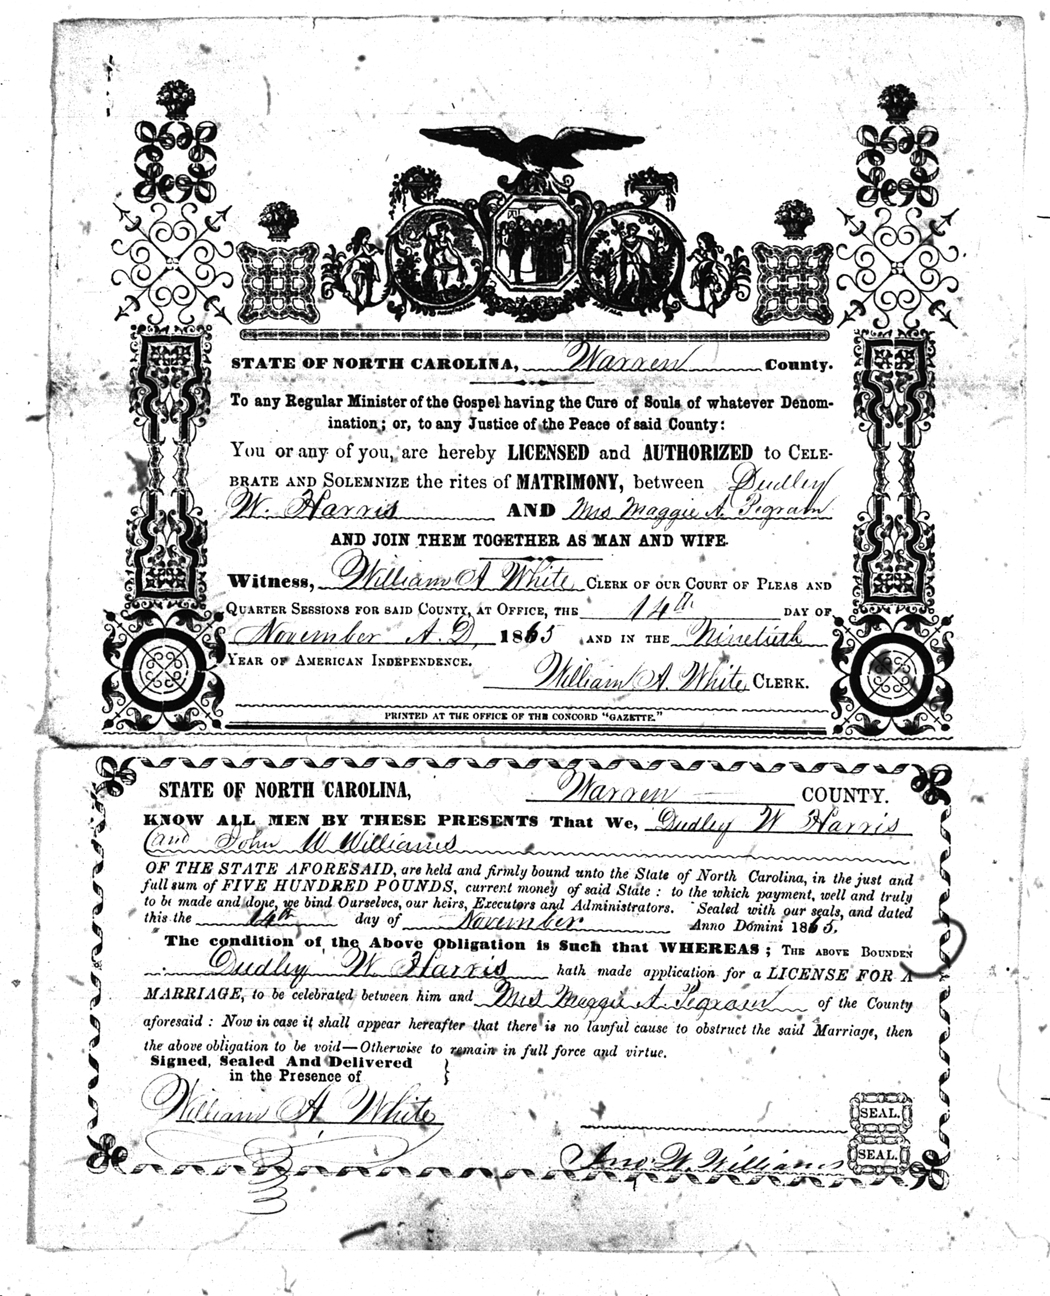 STATE OF NORTH CAROLINA, Warren County.
To any Regular Minister of the Gospel having the Cure of Souls of whatever Denom-
ination; or, to any Justice of the Peace of said County:
You or any of you, are hereby LICENSED and AUTHORIZED to CELE-
BRATE AND SOLEMNIZE the rites of MATRIMONY, between Dudley
W. Harris AND Mrs Maggie A. Pegram
AND JOIN THEM TOGETHER AS MAN AND WIFE.
Witness, William A White CLERK OF OUR COURT OF PLEAS AND
QUARTER SESSIONS FOR SAID COUNTY, AT OFFICE, THE 14th DAY OF
November A.D, 1865 AND IN THE Ninetieth
YEAR OF AMERICAN INDEPENDENCE.
William A. White CLERK.
PRINTED AT THE OFFICE OF THE CONCORD "GAZETTE."
STATE OF NORTH CAROLINA, Warren COUNTY.
KNOW ALL MEN BY THESE PRESENTS That We, Dudley W Harris
and John W Williams
OF THE STATE AFORESAID, are held and firmly bound unto the State of North Carolina, in the just and
full sum of FIVE HUNDRED POUNDS, current money of said State: to the which payment, well and truly
to be made and done, we bind Ourselves, our heirs, Executors and Administrators. Sealed with our seals, and dated
this the 14th day of November Anno Domini 1865.
The condition of the Above Obligation is Such that WHEREAS; THE ABOVE BOUNDEN
Dudley W Harris hath made application for a LICENSE FOR A
MARRIAGE, to be celebrated between him and Mrs Maggie A. Pegram of the County
aforesaid: Now in case it shall appear hereafter that there is no lawful cause to obstruct the said Marriage, then
the above obligation to be void—Otherwise to remain in full force and virtue.
Signed, Sealed And Delivered
in the Presence of
William A White
SEAL.
Jno. W. Williams SEAL.